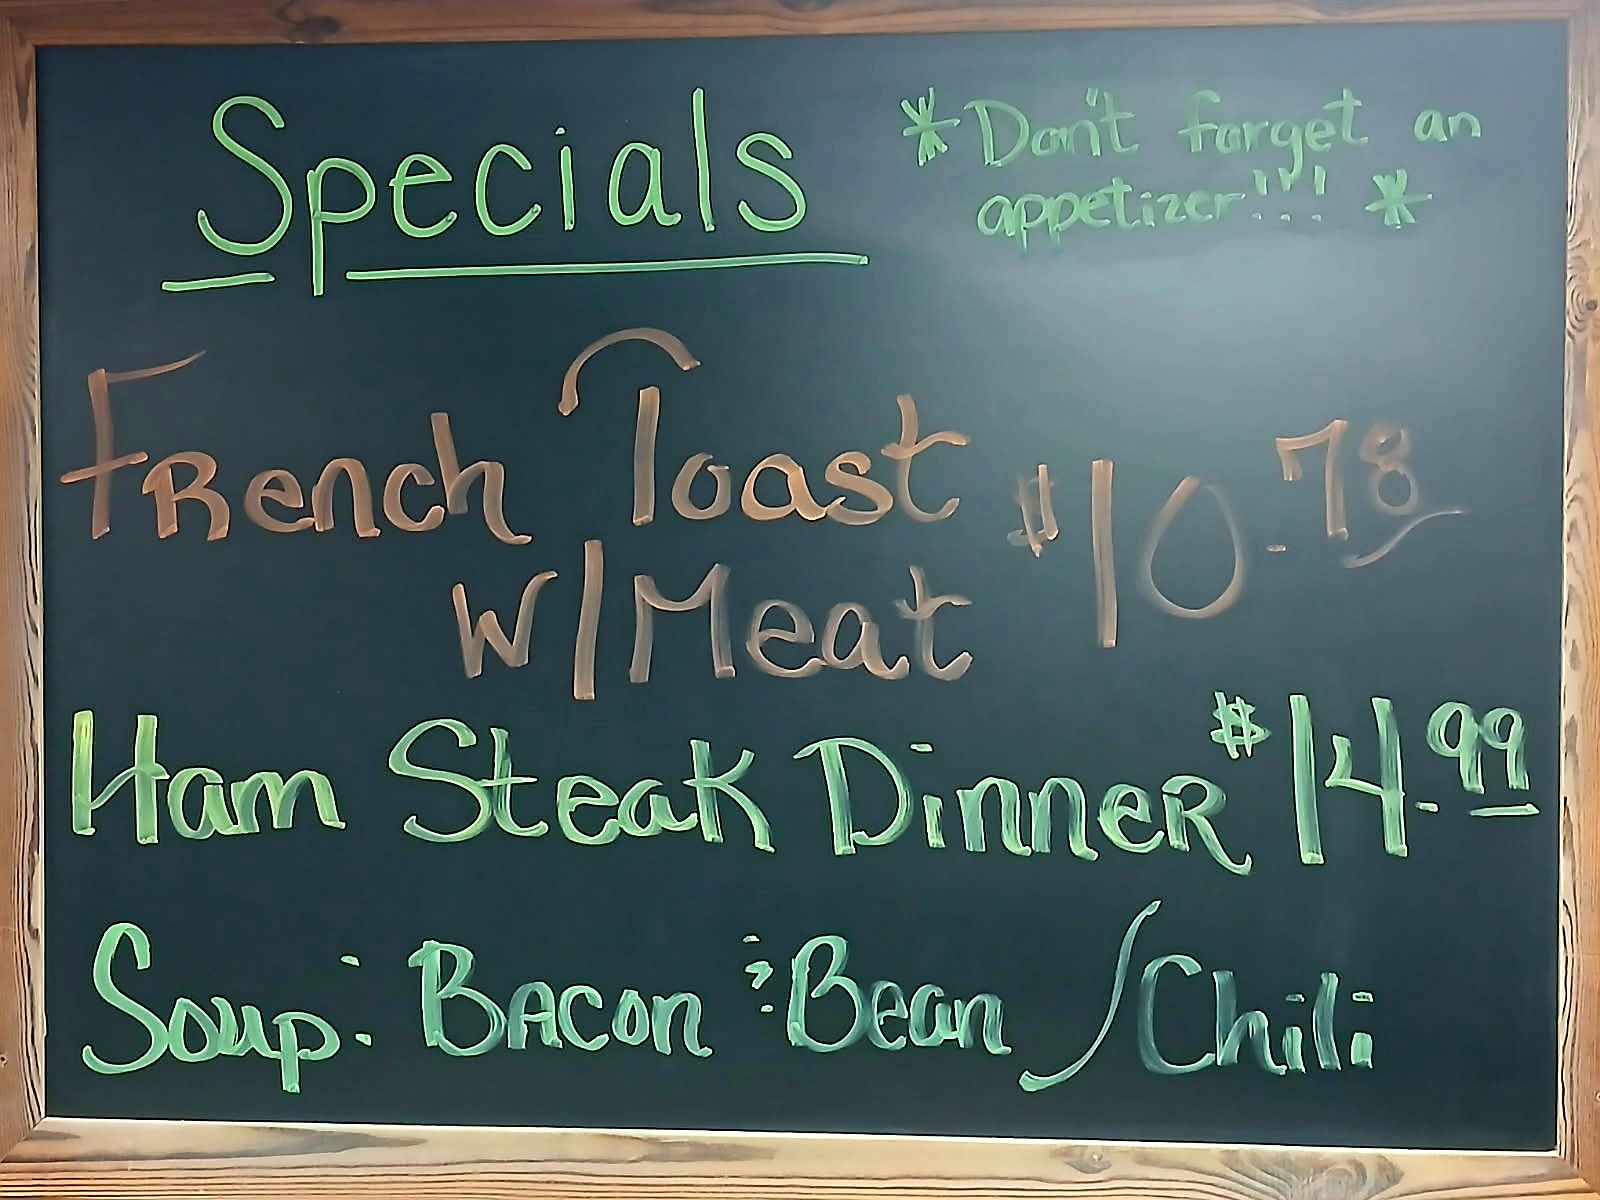 Specials
*Don't forget an
appetizer!!! *
French Toast $10.78
W/Meat
Ham Steak Dinner $14.99
Soup: Bacon & Bean / Chili